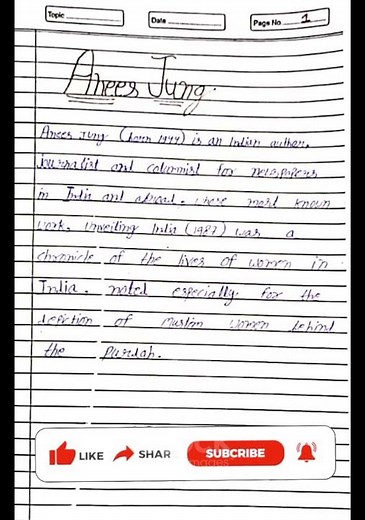 Topic
Date
Page No 1
Anees Jung.
Anees Jung (born 1944) is an Indian author,
journalist and columnist for newspapers
in India and abroad. whose most known
work. Unveiling India (1987) was a
chronicle of the lives of women in
India. noted especially for the
depiction of Muslim women behind
the Purdah.
LIKE SHAR SUBSCRIBE